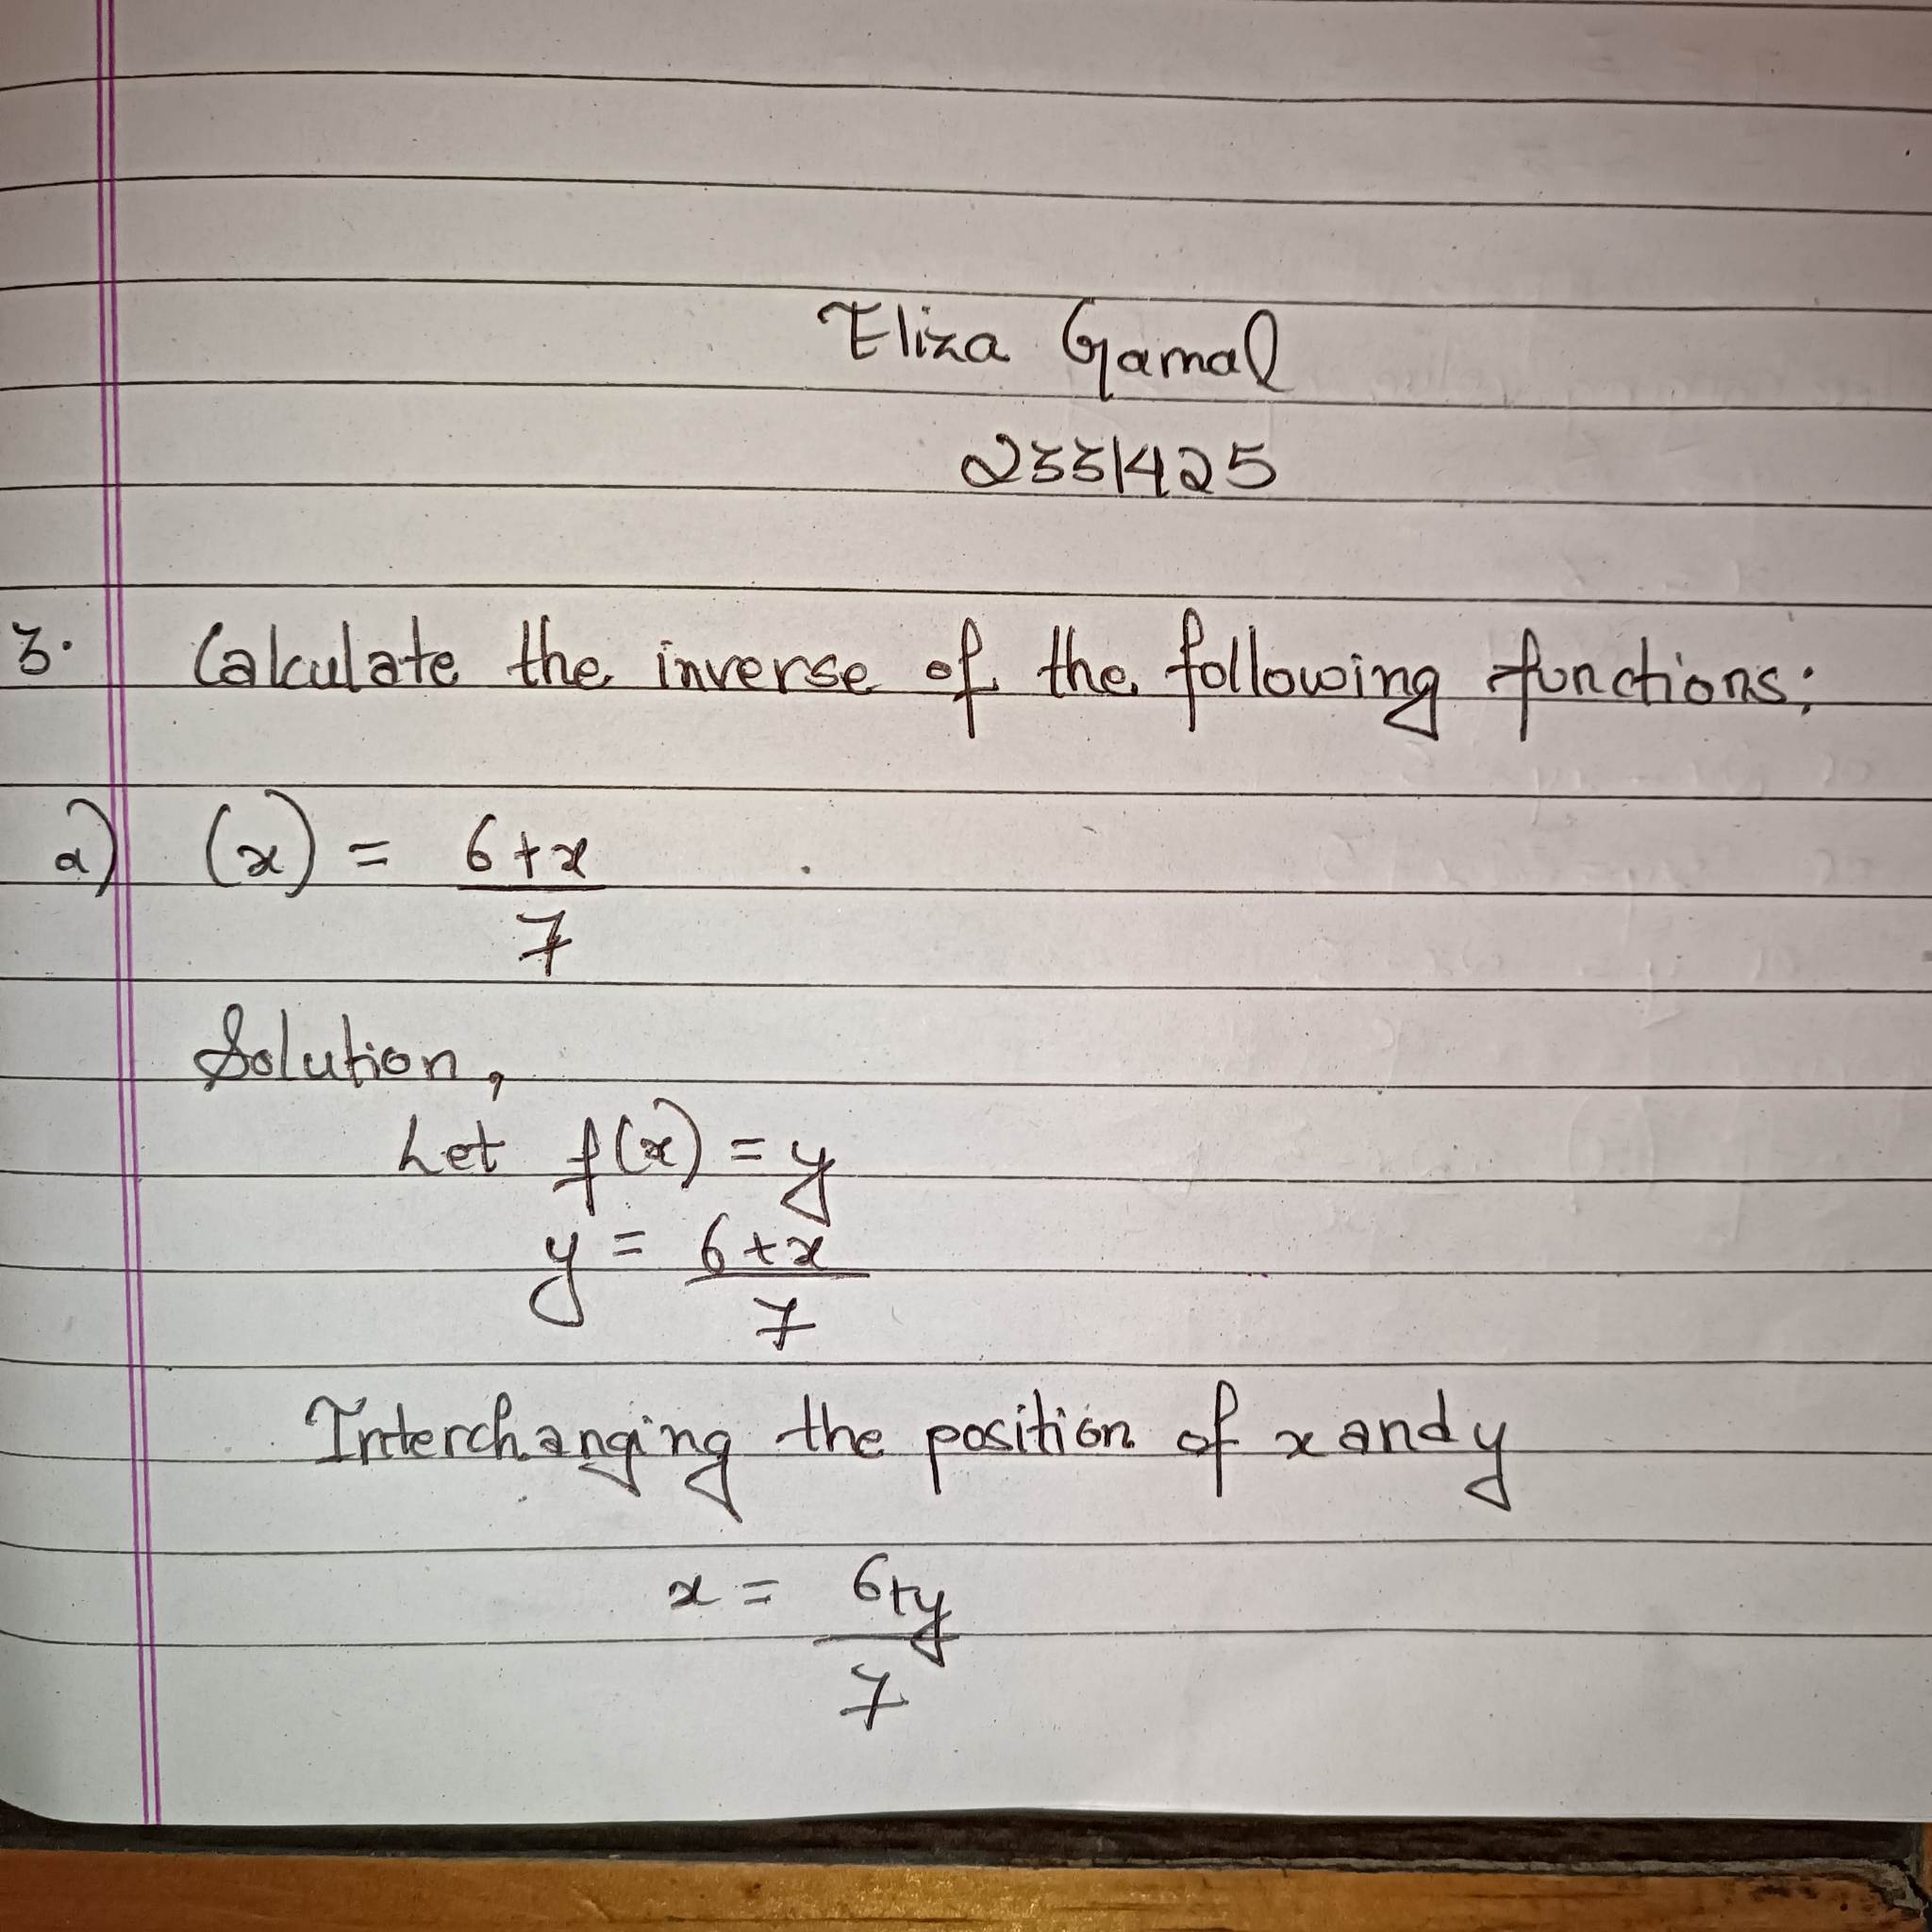 Eliza Gamal
2331425
3. Calculate the inverse of the following functions:
a) (x) = 6+x
7
Solution,
Let f(x) = y
y = 6+x
7
Interchanging the position of x and y
x = 6+y
7